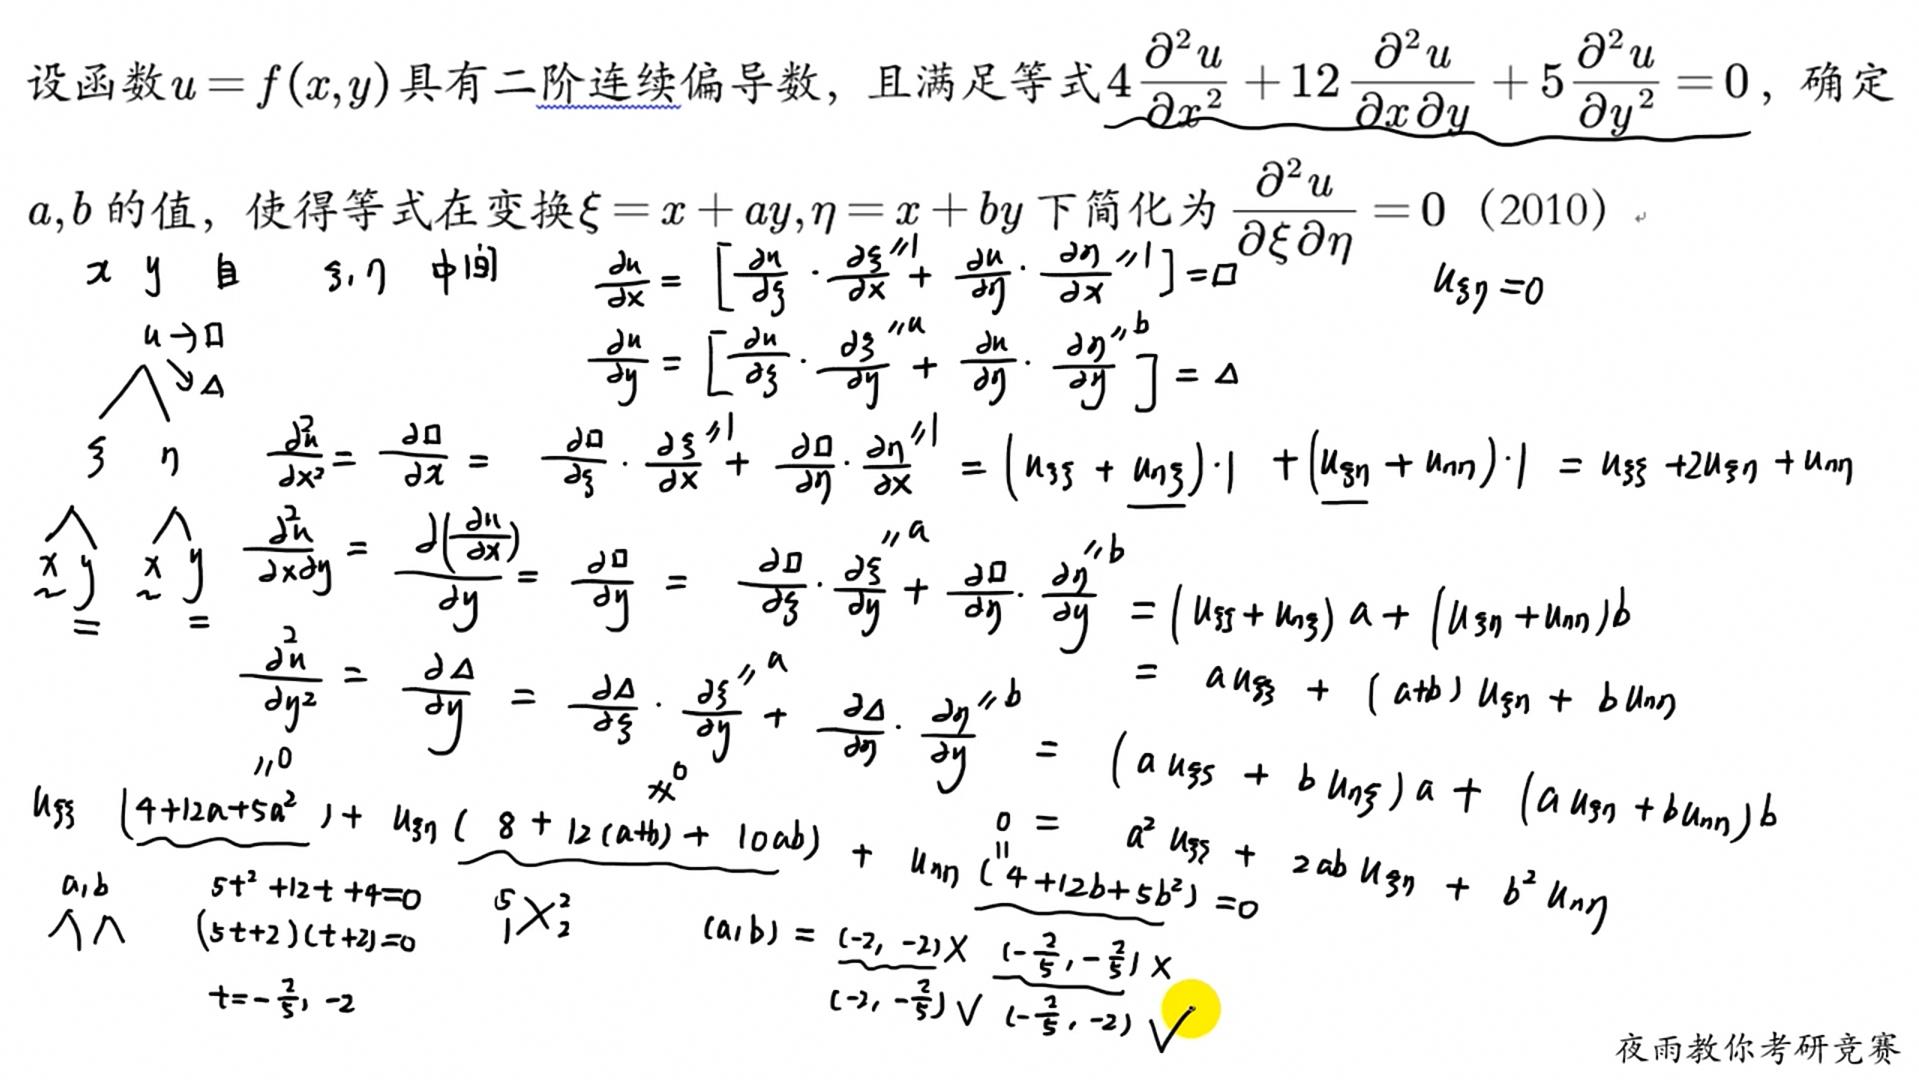 设函数u=f(x,y)具有二阶连续偏导数，且满足等式4∂²u/∂x²+12∂²u/∂x∂y+5∂²u/∂y²=0，确定
a,b的值，使得等式在变换ξ=x+ay,η=x+by下简化为∂²u/∂ξ∂η=0（2010）
x y 自 ξ,η 中间 ∂u/∂x=[∂u/∂ξ·∂ξ/∂x "1+∂u/∂η·∂η/∂x "1]=□ uξη=0
u→□ ∂u/∂y=[∂u/∂ξ·∂ξ/∂y "a+∂u/∂η·∂η/∂y "b]=Δ
↘Δ
ξ η ∂²u/∂x²=∂□/∂x=∂□/∂ξ·∂ξ/∂x "1+∂□/∂η·∂η/∂x "1=(uξξ+uηξ)·1+(uξη+uηη)·1=uξξ+2uξη+uηη
x y x y ∂²u/∂x∂y=∂(∂u/∂x)/∂y=∂□/∂y=∂□/∂ξ·∂ξ/∂y "a+∂□/∂η·∂η/∂y "b=(uξξ+uηξ)a+(uξη+uηη)b
=auξξ+(a+b)uξη+buηη
∂²u/∂y²=∂Δ/∂y=∂Δ/∂ξ·∂ξ/∂y "a+∂Δ/∂η·∂η/∂y "b=(auξξ+buηξ)a+(auξη+buηη)b
=a²uξξ+2abuξη+b²uηη
uξξ(4+12a+5a²)"0+uξη(8+12(a+b)+10ab)※0+uηη(4+12b+5b²)"0=0
a,b 5t²+12t+4=0 5 2
(5t+2)(t+2)=0 1 2
t=-2/5,-2
(a,b)=(-2,-2)× (-2/5,-2/5)×
(-2,-2/5)√ (-2/5,-2)√
夜雨教你考研竞赛